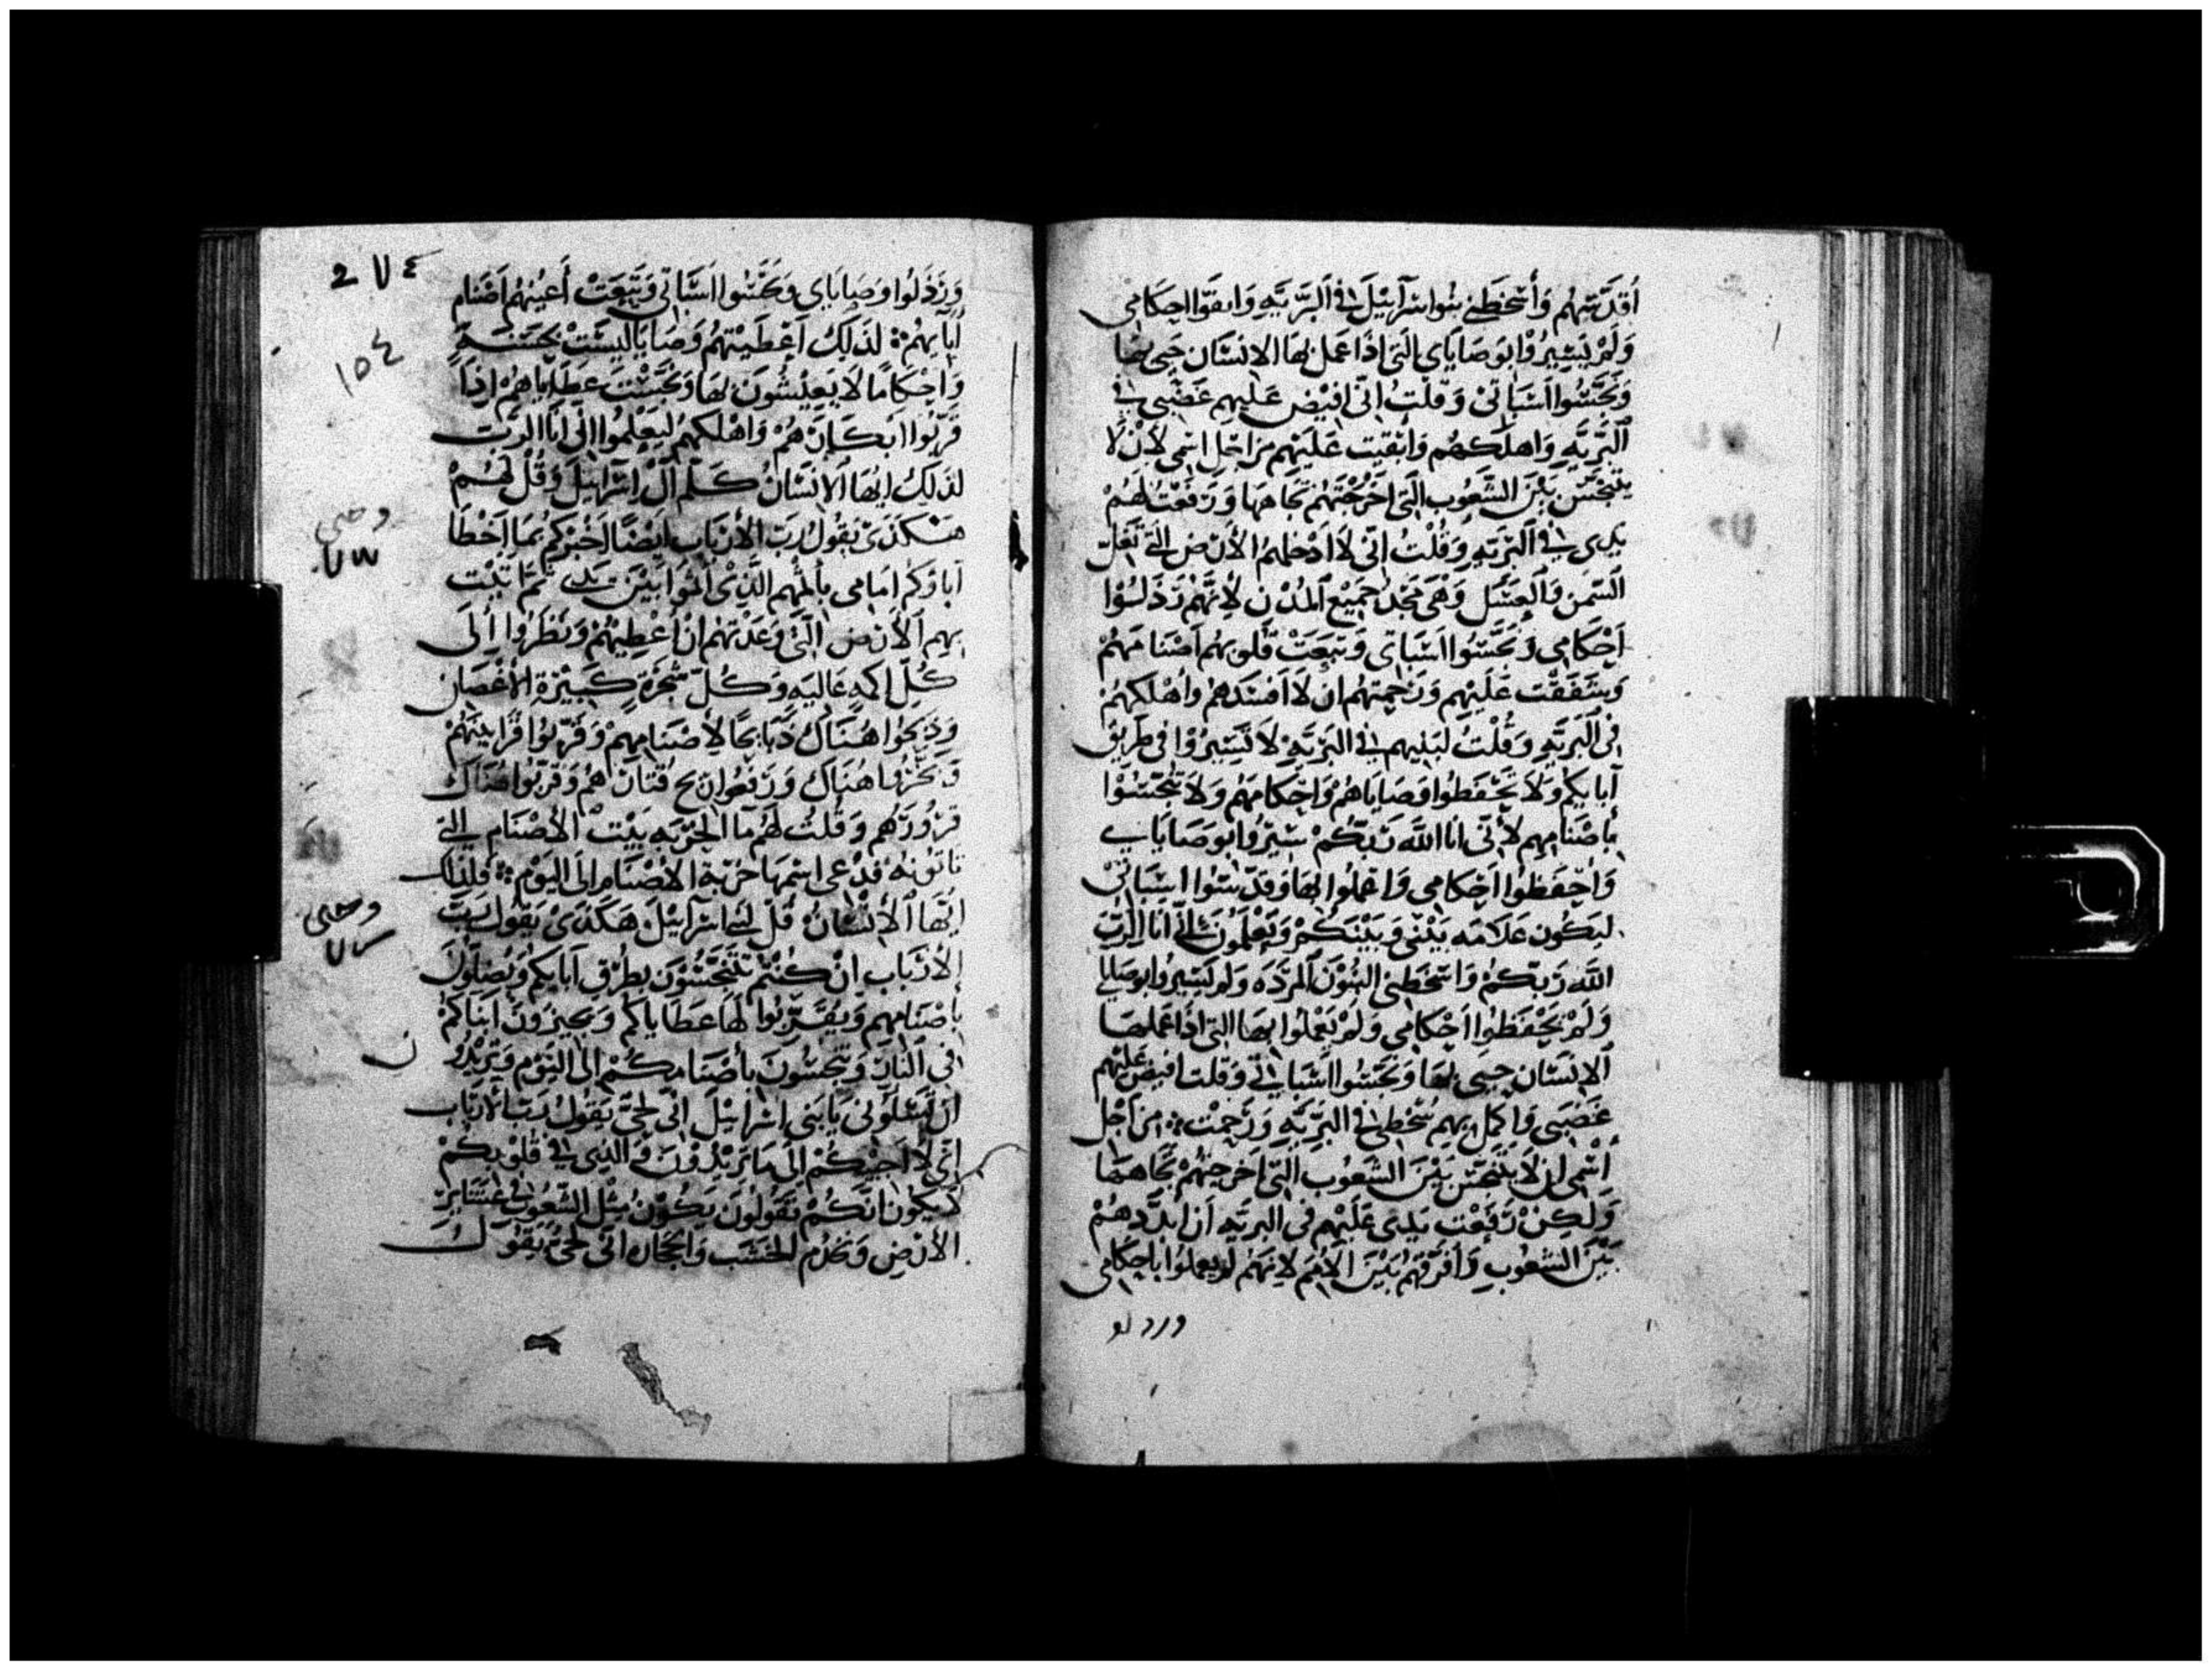 أقدستهم وأسخطني بنوا اسرآئيل في البريه وابقوا احكامي
ولم يسيروا بوصاياي التي اذا عمل بها الانسان حيي بها
ونجسوا اسباتي وقلت اني افيض عليهم غضبي في
البريه واهلكهم وابقيت عليهم من اجل اسمي لان لا
يتنجس بين الشعوب التي اخرجتهم تجاهها ورفعت لهم
يدي في البريه وقلت اني لا ادخلهم الارض التي تغل
السمن والعسل وهي مجد جميع المدن لانهم رذلوا
احكامي ونجسوا اسباتي وتبعت قلوبهم اصنامهم
وشفقت عليهم ورحمتهم ان لا افسدهم واهلكهم
في البريه وقلت لبنيهم في البريه لا تسيروا في طريق
آبايكم ولا تحفظوا وصاياهم واحكامهم ولا تنجسوا
باصنامهم لأني انا الله ربكم سيروا بوصاياي
واحفظوا احكامي واعملوا بها وقدسوا اسباتي
ليكون علامه بيني وبينكم وتعلمون اني انا الرب
الله ربكم واسخطني البنون المرده ولم يسيروا بوصاياي
ولم يحفظوا احكامي ولم يعملوا بها التي اذا عملها
الانسان حيي بها ونجسوا اسباتي وقلت افيض عليهم
غضبي واكمل بهم سخطي في البريه ورحمت من اجل
اسمي ان لا يتنجس بين الشعوب التي اخرجتهم تجاهها
ولكن رفعت يدي عليهم في البريه ان ابددهم
بين الشعوب وافرقهم بين الامم لانهم لم يعملوا باحكامي
ورذلو
2٧٤
١٥٤
ورذلوا وصاياي ونجسوا اسباتي وتبعت أعينهم اصنام
آبايهم لذلك اعطيتهم وصايا ليست بحسنة
واحكاما لا يعيشون بها ونجست عطاياهم اذا
قربوا ابكارهم واهلكهم ليعلموا اني انا الرب
لذلك ايها الانسان كلم آل اسرائيل وقل لهم
هكذى يقول رب الارباب ايضا اخبركم بما اخطا
آباؤكم امامي باثمهم الذي اثموا بين يدي ثم اتيت
بهم الارض التي وعدتهم ان اعطيهم ونظروا إلى
كل اكمه عاليه وكل شجرة كبيرة الاغصان
وذبحوا هناك ذبايحا لأصنامهم وقربوا قرابينهم
هناك ورفعوا ريح قتارهم وقربوا هناك
وقلت لهم ما الحربه بيت الاصنام التي
تاتونه فدعى اسمها حربة الاصنام الى اليوم فلذلك
ايها الانسان قل لبني اسرآئيل هكذى يقول رب
الارباب ان كنتم تتنجسون بطرق آبايكم وتضلون
باصنامهم وتقربوا لها عطاياكم وتجيزون ابناكم
في النار وتتنجسون بأصنامكم الى اليوم وتريدون
ان تسلوني يا بني اسرائيل اني لحي يقول رب الارباب
اني لا اجيبكم الى ما تريدون والذي في قلوبكم
لا يكون انكم تقولون نكون مثل الشعوب عشاير
الارض ونخدم الخشب والحجاره اني لحي يقول